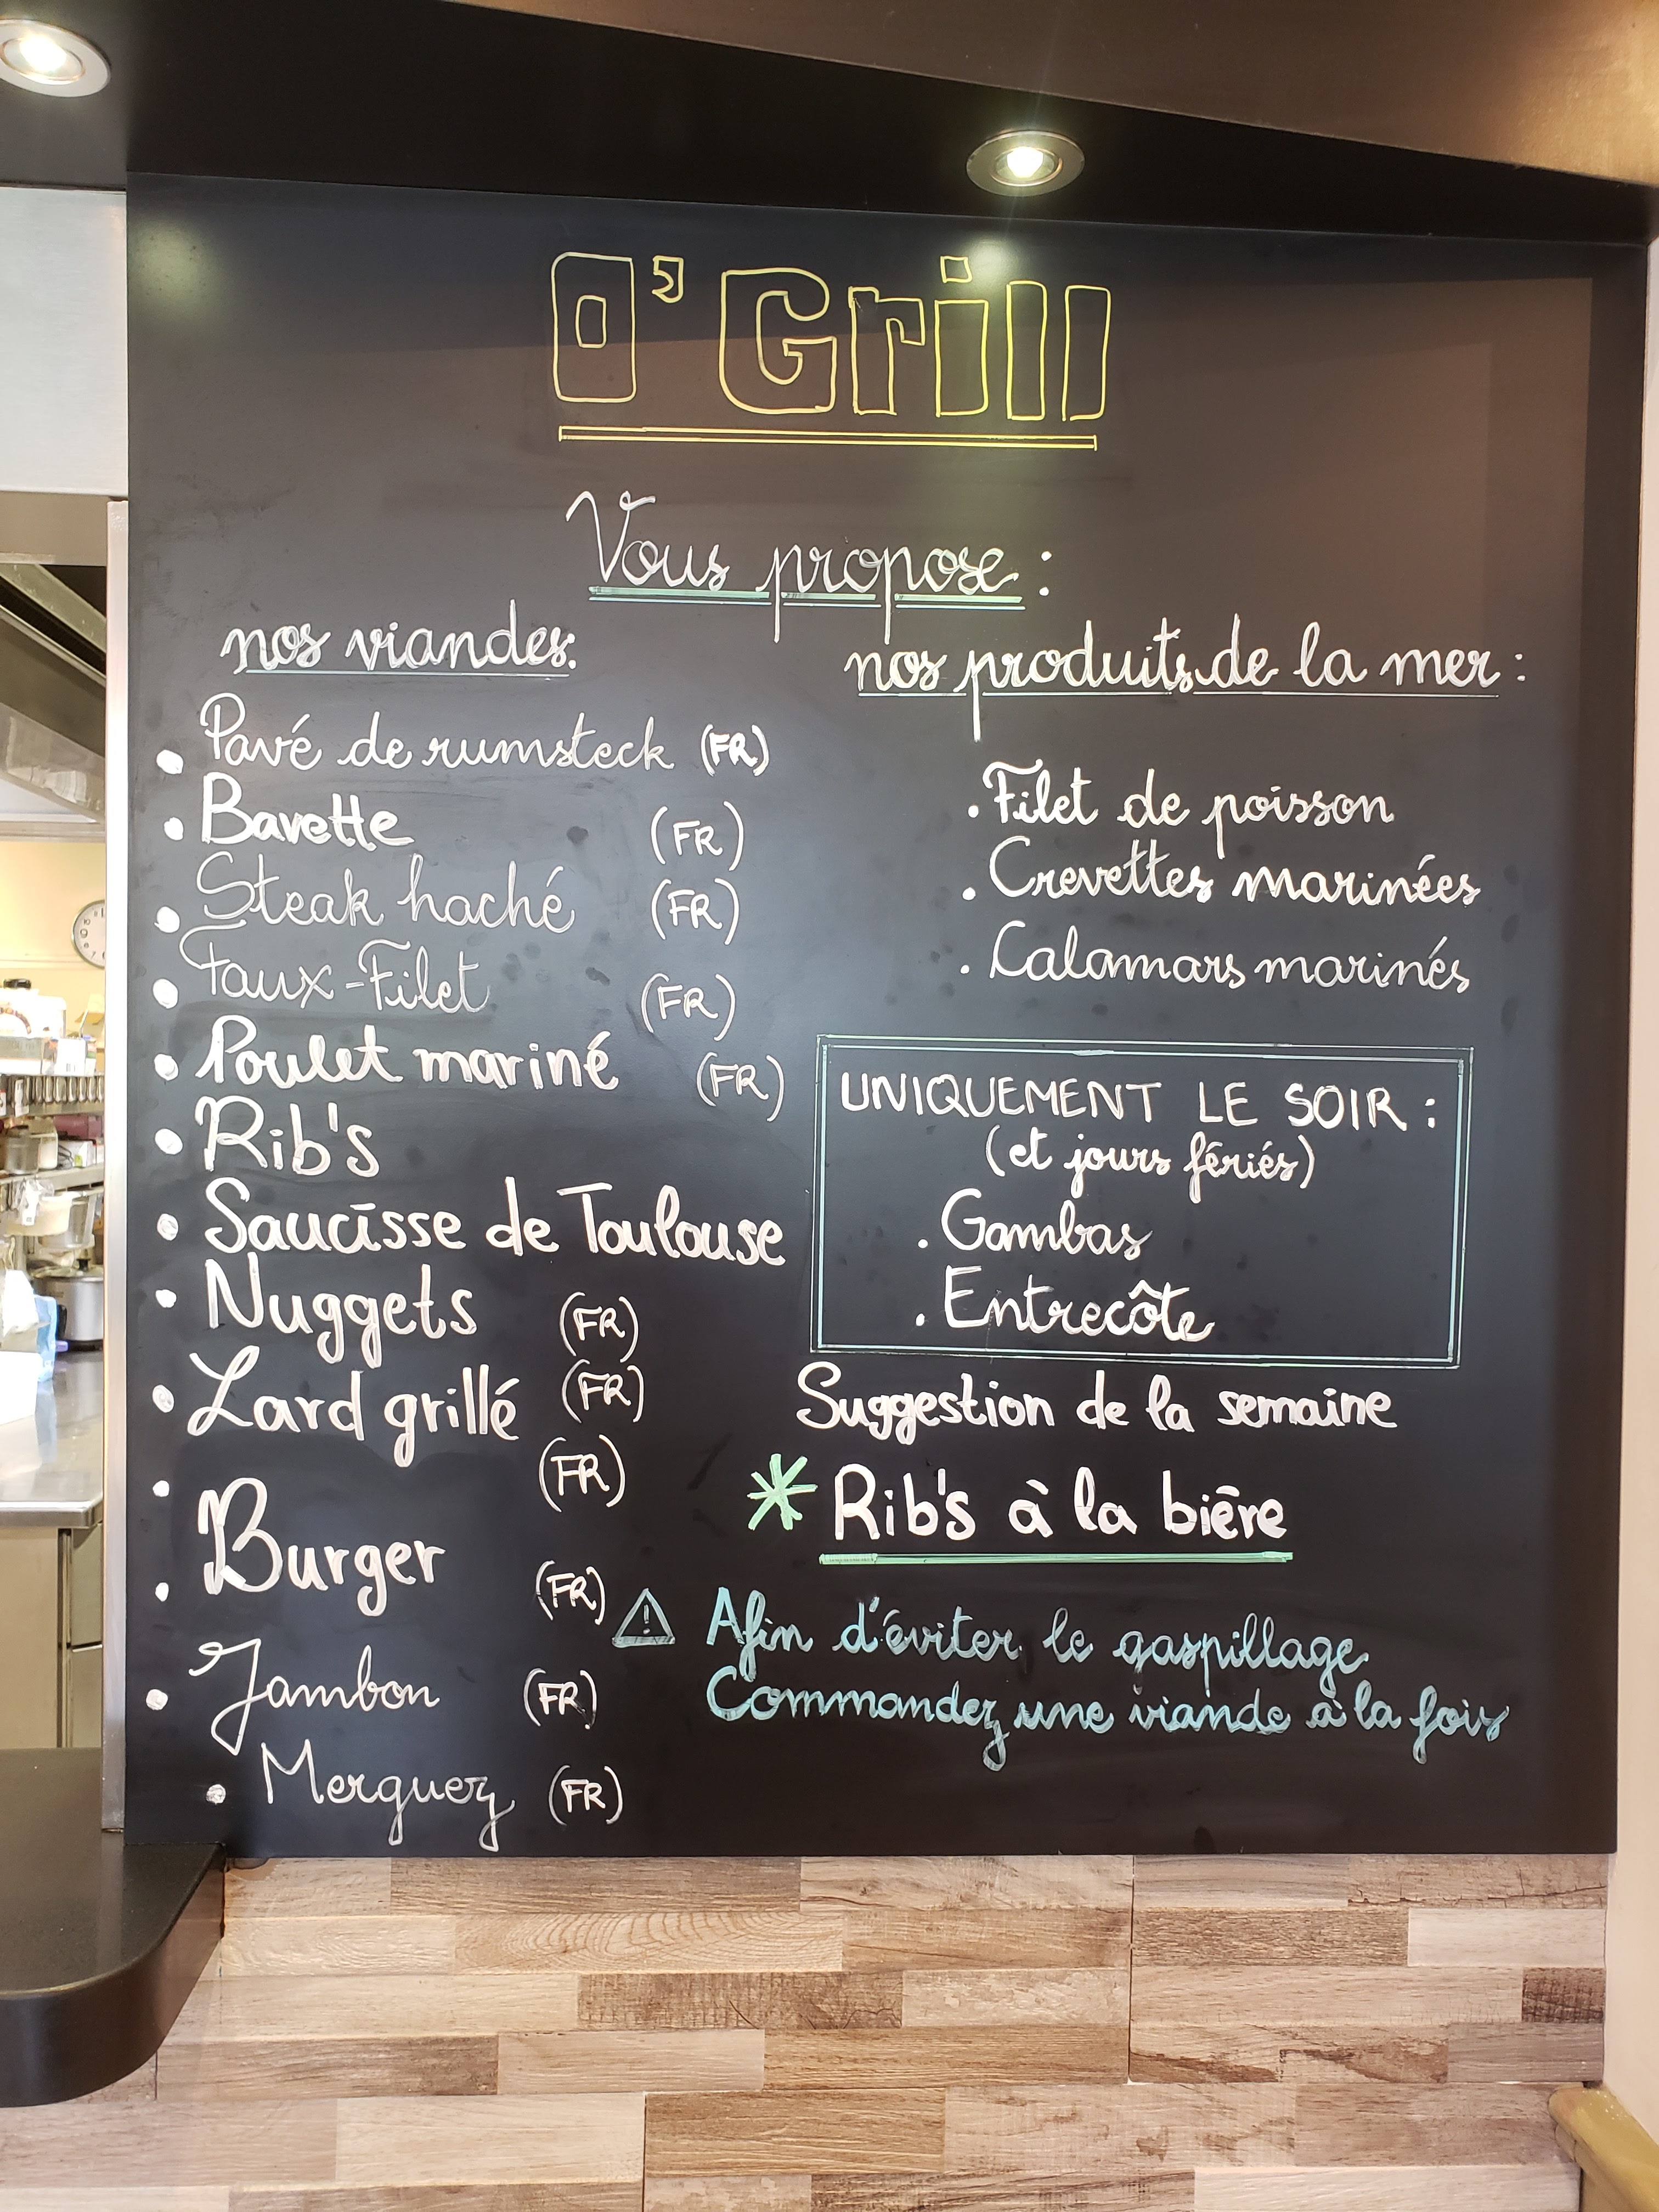 O'Grill
Vous propose :
nos viandes:
Pavé de rumsteck (FR)
Bavette (FR)
Steak haché (FR)
Faux-Filet (FR)
Poulet mariné (FR)
Rib's
Saucisse de Toulouse
Nuggets (FR)
Lard grillé (FR)
(FR)
Burger
(FR)
Jambon (FR)
Merguez (FR)
nos produits de la mer :
. Filet de poisson
. Crevettes marinées
. Calamars marinés
UNIQUEMENT LE SOIR :
(et jours fériés)
. Gambas
. Entrecôte
Suggestion de la semaine
* Rib's à la bière
⚠ Afin d'éviter le gaspillage
Commandez une viande à la fois